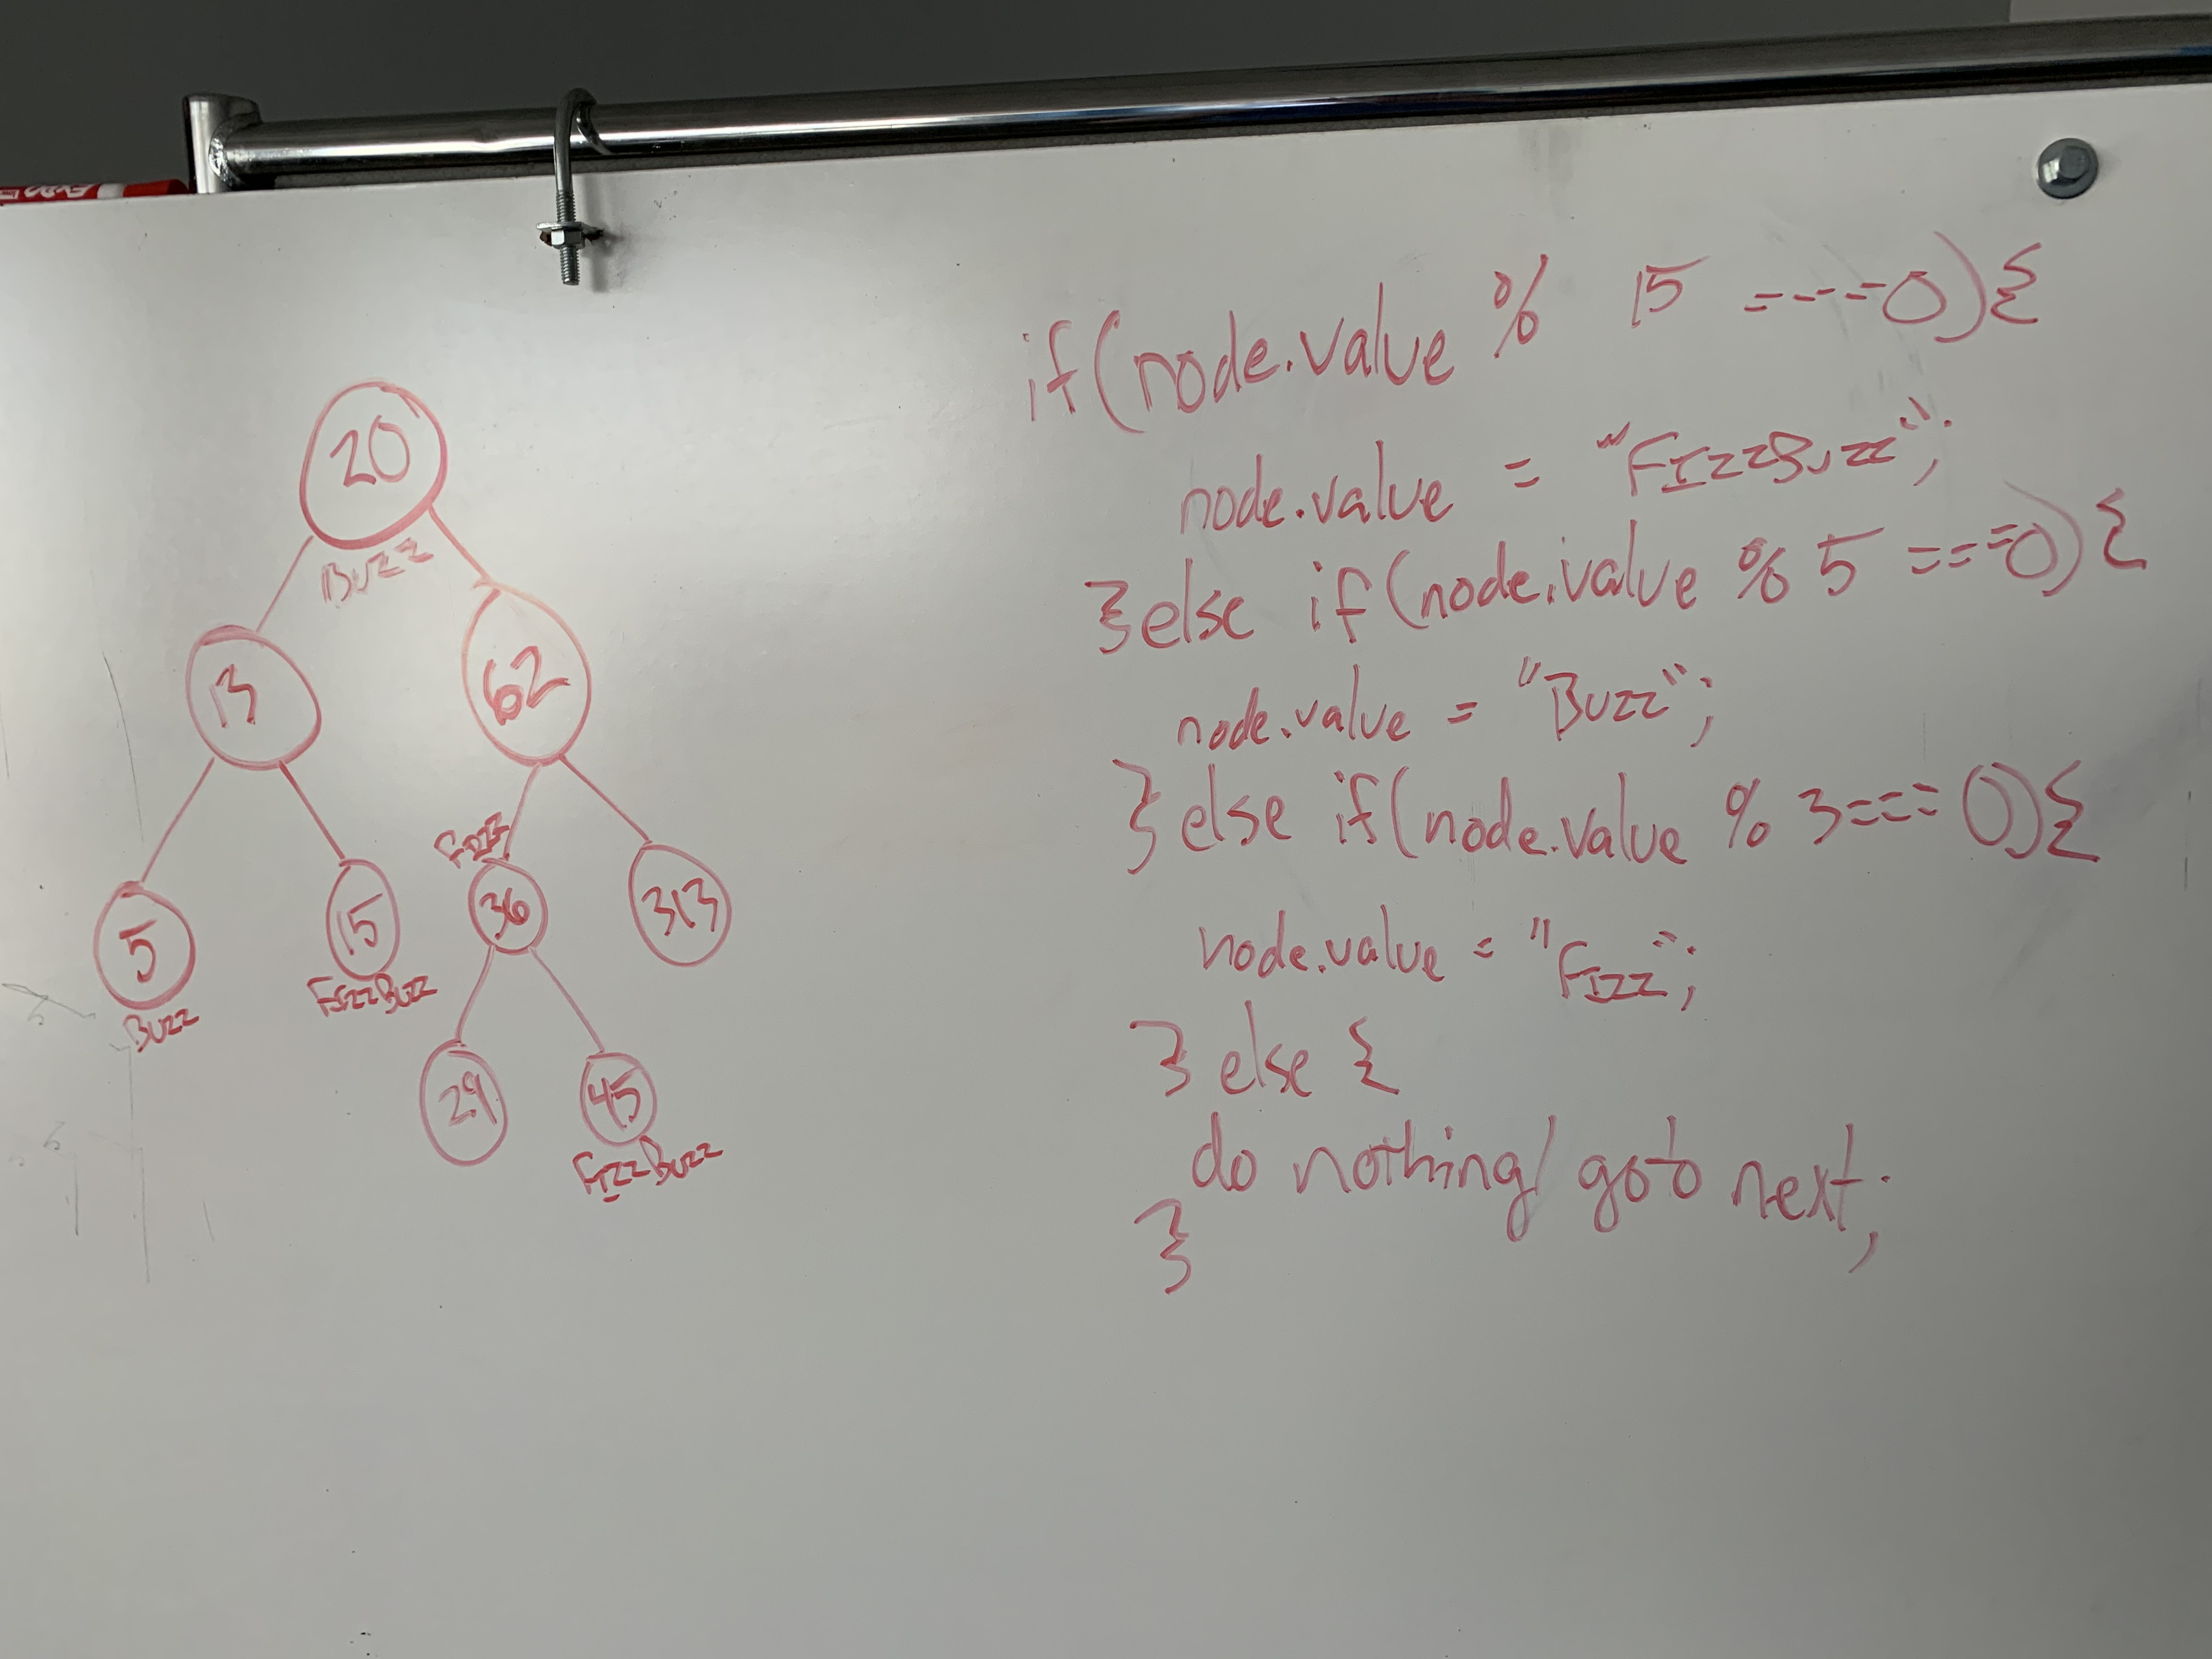 EXPO
20
Buzz
13
62
Fizz
5
15
36
313
Buzz
FizzBuzz
29
45
FizzBuzz
if(node.value % 15 === 0){
node.value = "FizzBuzz";
}else if(node.value % 5 === 0){
node.value = "Buzz";
}else if(node.value % 3 === 0){
node.value = "Fizz";
}else {
do nothing/ go to next;
}